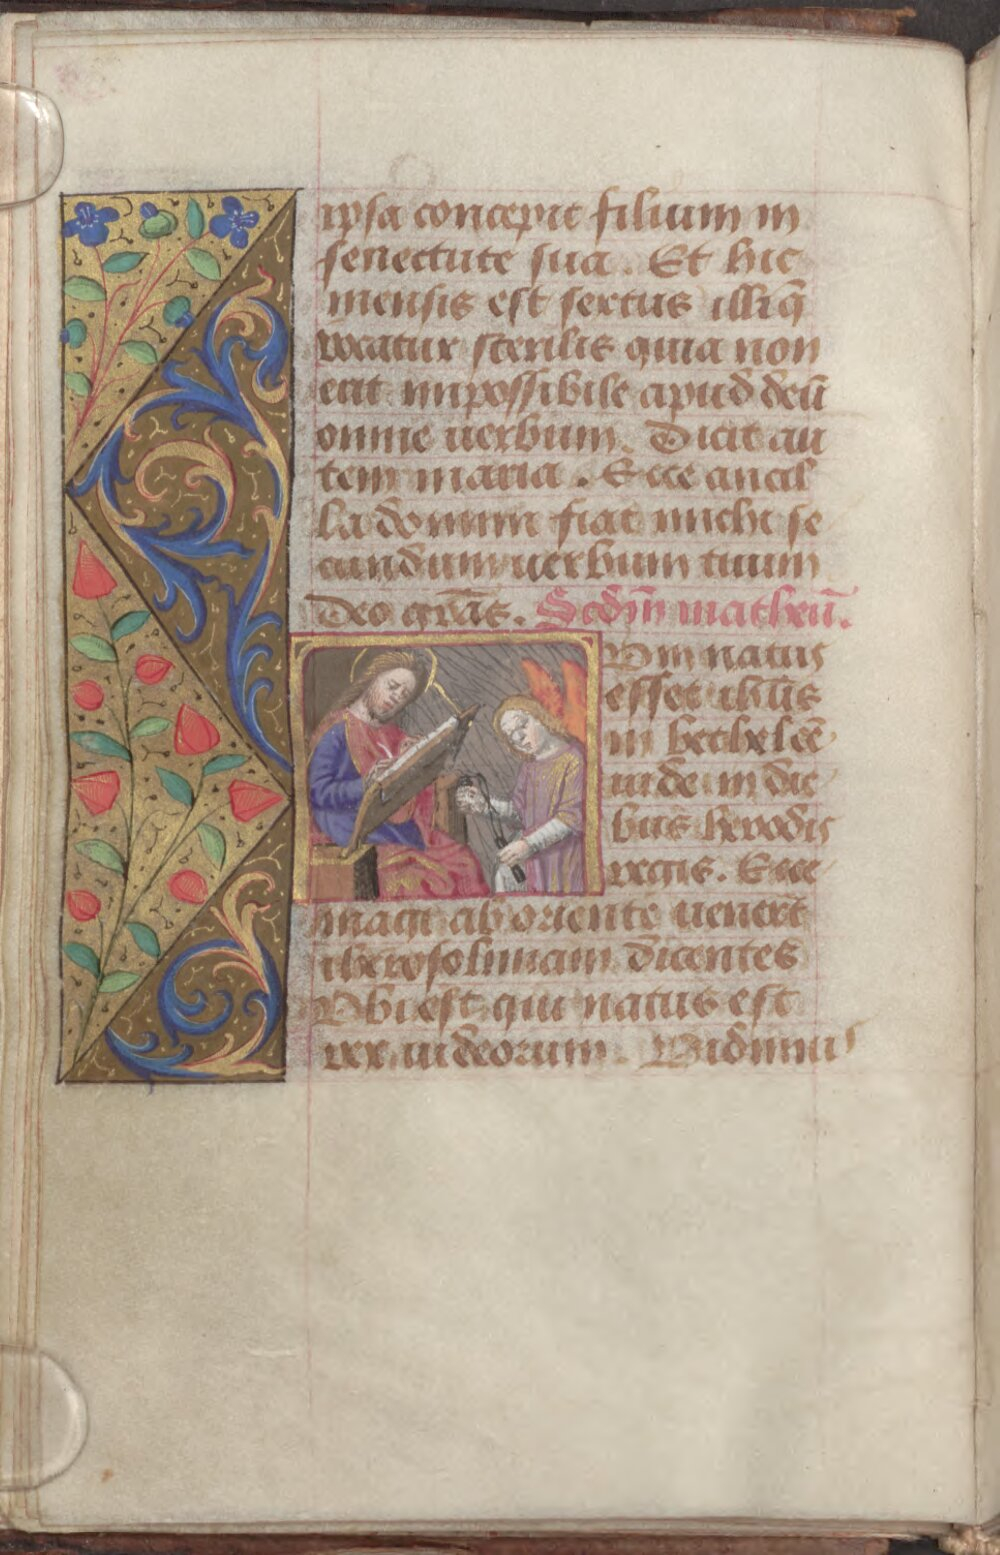 ipsa concepit filium in
senectute sua. Et hic
mensis est sextus illi q̄
vocatur sterilis quia non
erit impossibile apud deū
omne uerbum. Dixit au
tem maria. Ecce ancil
la domini fiat michi se
cundum uerbum tuum
Deo grās. Scdm̄ matheū.
Cum natus
esset ihūs
in bethleē
iude in die
bus herodis
regis. Ecce
magi ab oriente uenerūt
iherosolimam dicentes
Vbi est qui natus est
rex iudeorum. Vidimus